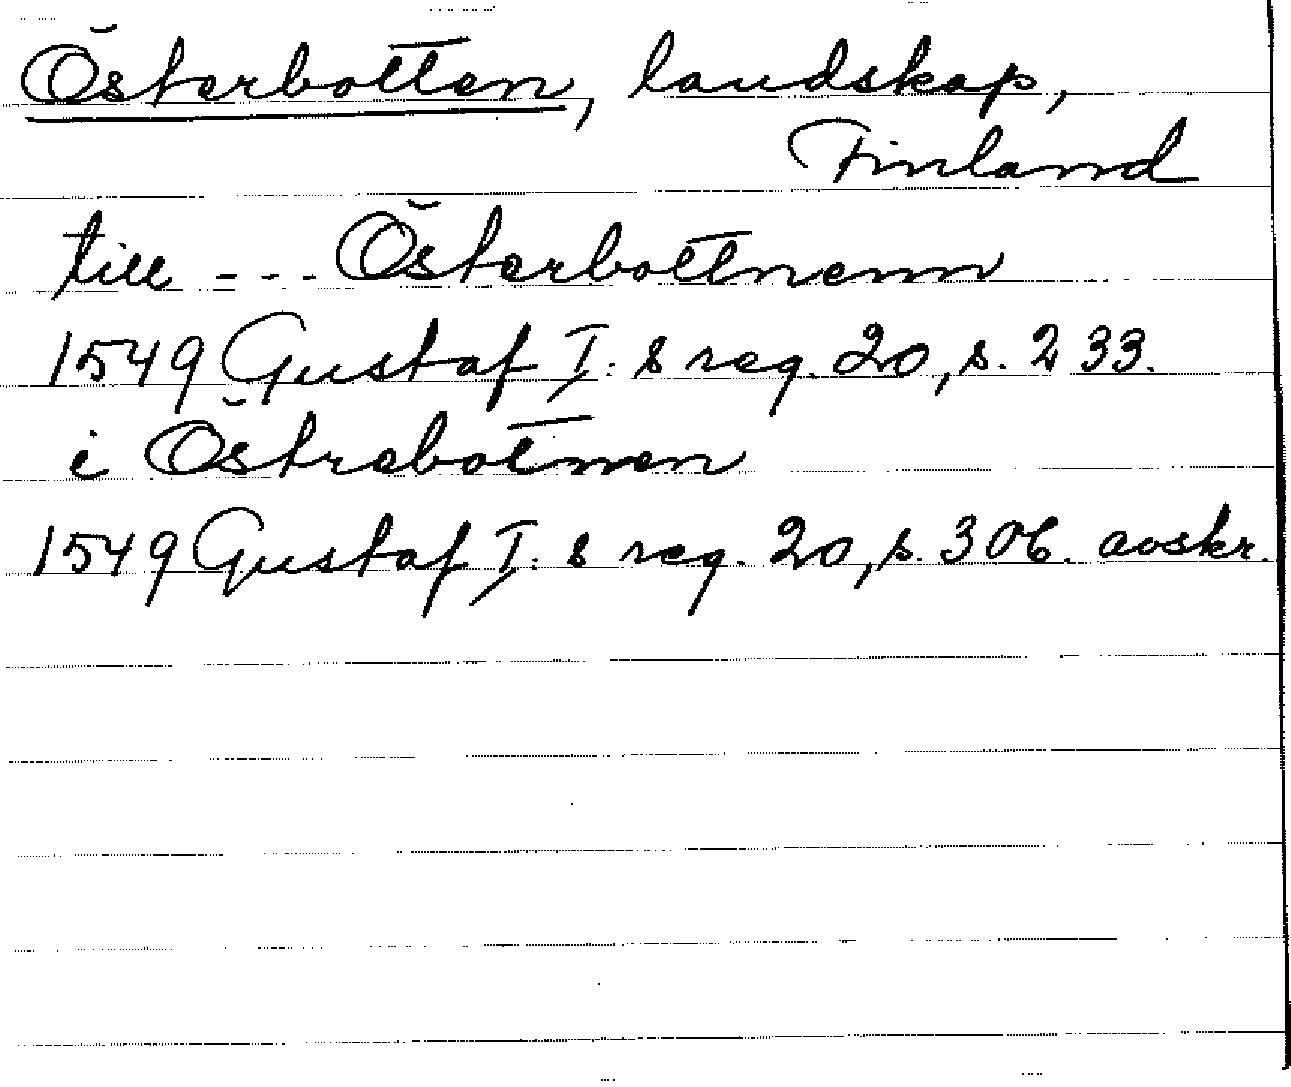 Österbotten, landskap,
Finland
till --- Österbottnenn
1549 Gustaf I:s reg. 20, s. 233.
i Östrebotnen
1549 Gustaf I:s reg. 20, s. 306. avskr.